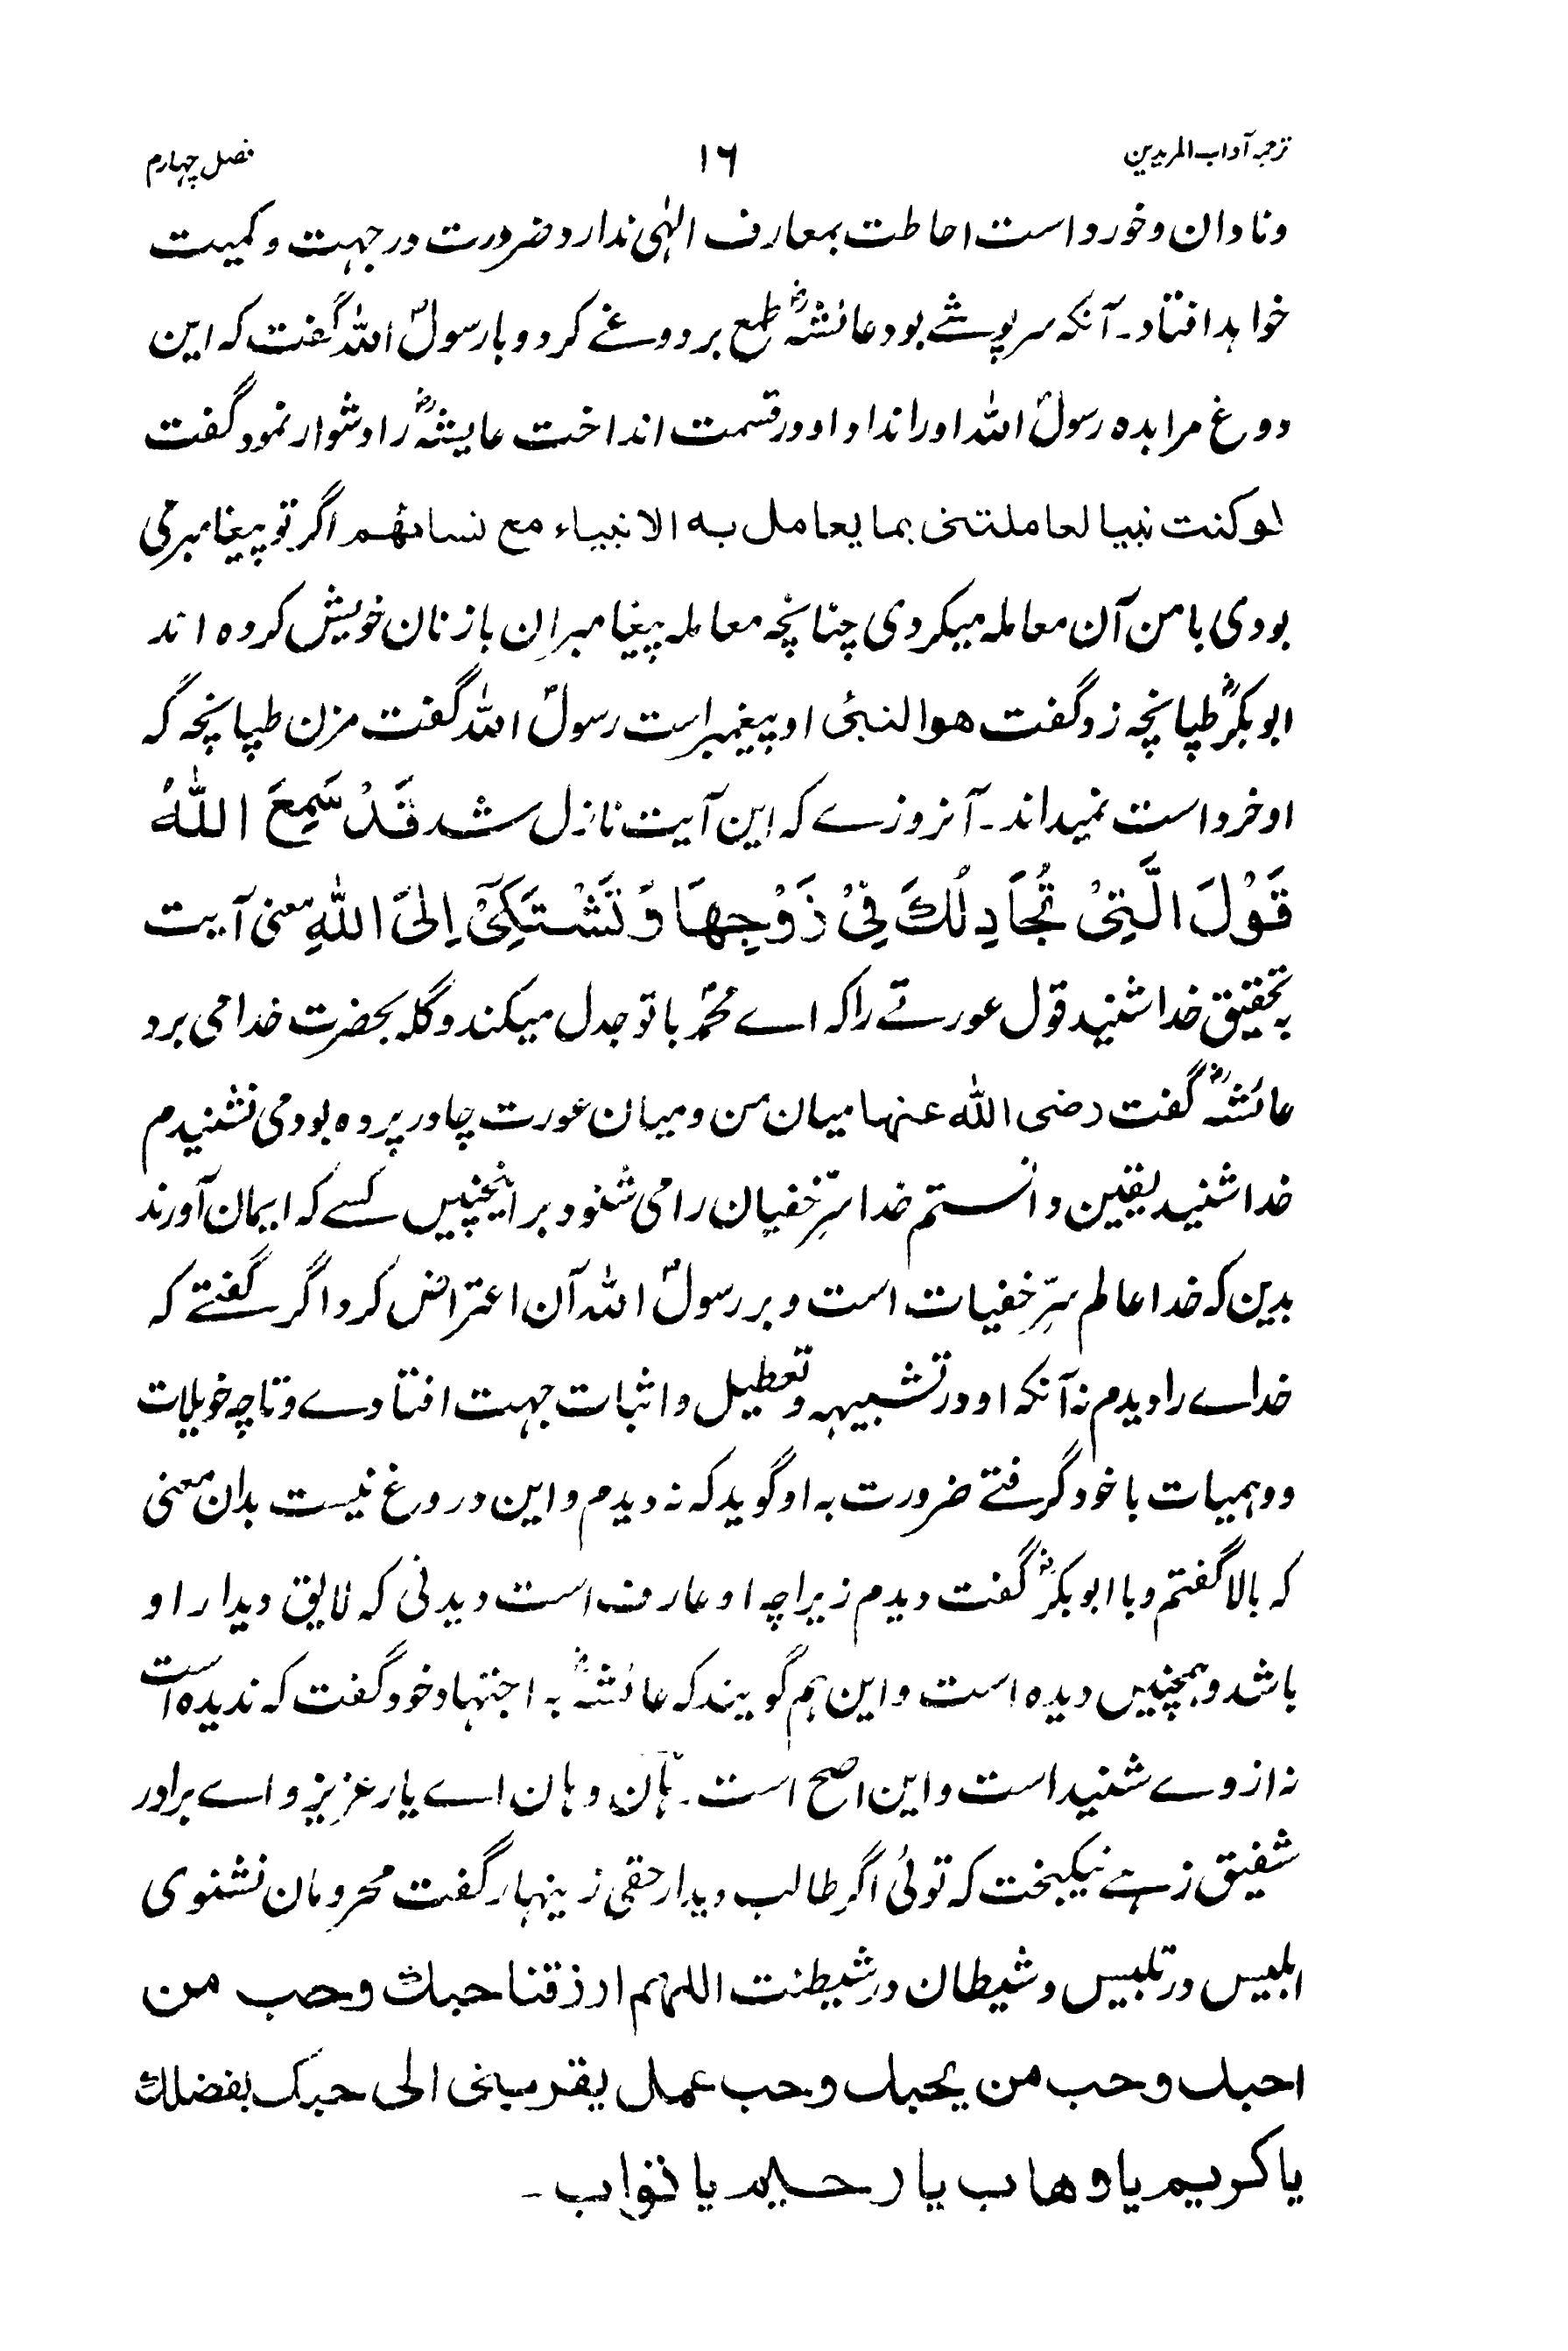 ترجمہ آداب المریدین
۱۶
فصل چہارم
ونادان وخورد است احاطت بمعارف الٰہی ندارد ضرورت در جہت وکمیت
خواہد افتاد۔ آنکہ سرپوشے بود عائشہؓ طمع بر دوغے کرد و با رسولؐ اللہ گفت کہ این
دوغ مرا بدہ رسولؐ اللہ اورا نداد او در قسمت انداخت عایشہؓ را دشوار نمود گفت
لو کنت نبیا لعاملتنی بما یعامل به الانبیاء مع نسائهم اگر تو پیغامبر می
بودی با من آن معاملہ میکردی چنانچہ معاملہ پیغامبران با زنان خویش کردہ اند
ابوبکرؓ طپانچہ زد گفت هو النبی او پیغمبر است رسولؐ اللہ گفت مزن طپانچہ کہ
او خرد است نمیداند۔ آنروزے کہ این آیت نازل شد قَدْ سَمِعَ اللّٰهُ
قَوْلَ الَّتِیْ تُجَادِلُكَ فِیْ زَوْجِهَا وَتَشْتَكِیْٓ اِلَی اللّٰهِ معنی آیت
بتحقیق خدا شنید قول عورتے را کہ اے محمدؐ با تو جدل میکند و گلہ بحضرت خدا می برد
عائشہؓ گفت رضی اللہ عنہا میان من و میان عورت چادر پردہ بود می نشنیدم
خدا شنید یقین دانستم خدا سرّ خفیان را می شنود بر اینچنیں کسے کہ ایمان آورند
بدین کہ خدا عالم سرّ خفیات است و بر رسولؐ اللہ آن اعتراض کرد اگر گفتے کہ
خداے را دیدم نہ آنکہ او در تشبیہہ و تعطیل و اثبات جہت افتادے و تا چہ خویلات
و وہمیات با خود گرفتے ضرورت بہ او گوید کہ نہ دیدم و این دروغ نیست بدان معنی
کہ بالا گفتم و با ابوبکرؓ گفت دیدم زیراچہ او عارف است دیدنی کہ لایق دیدار او
باشد و ہمچنیں دیدہ است و این ہم گویند کہ عائشہؓ بہ اجتہاد خود گفت کہ ندیدہ است
نہ از وے شنید است و این اصح است۔ ہان و ہان اے یار عزیز و اے برادر
شفیق زہے نیکبخت کہ توئی اگر طالب دیدار حقی زینہار گفت محرومان نشنوی
ابلیس در تلبیس و شیطان در شیطنت اللهم ارزقنا حبك وحب من
احبك وحب من یحبك وحب عمل یقربنی الی حبك بفضلك
یا کریم یا وهاب یا رحیم یا تواب۔